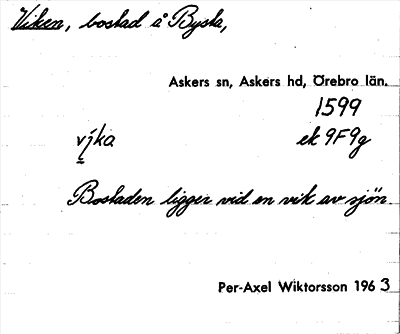 Viken, bostad å Bysta,
Askers sn, Askers hd, Örebro län.
1599
vi̯ka ek 9F9g
Bostaden ligger vid en vik av sjön.
Per-Axel Wiktorsson 1963